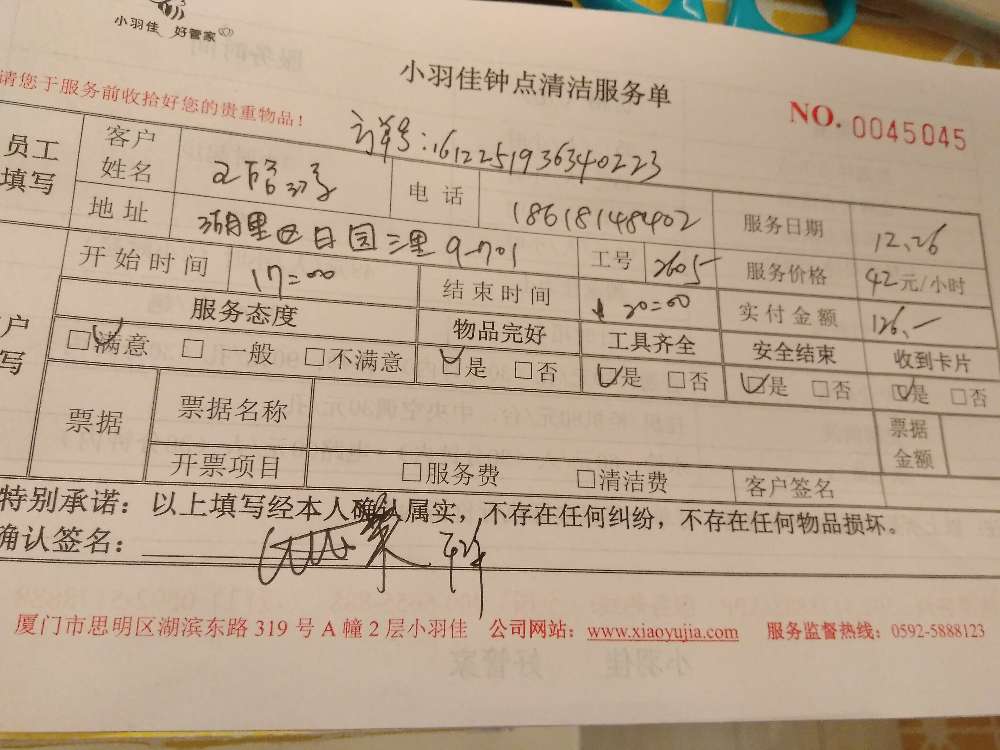 小羽佳 好管家
小羽佳钟点清洁服务单
NO. 0045045
请您于服务前收拾好您的贵重物品!
订单号:1612251936340223
员工填写
客户姓名
电话 18618148402
服务日期 12.26
地址 湖里区日园二里9-701
工号 2605
服务价格 42元/小时
开始时间 17:00
结束时间 20:00
实付金额 126.-
服务态度 物品完好 工具齐全 安全结束 收到卡片
☑满意 □一般 □不满意 ☑是 □否 ☑是 □否 ☑是 □否 ☑是 □否
票据 票据名称 票据金额
开票项目 □服务费 □清洁费 客户签名
特别承诺:以上填写经本人确认属实,不存在任何纠纷,不存在任何物品损坏。
确认签名:
厦门市思明区湖滨东路 319 号 A 幢 2 层小羽佳 公司网站:www.xiaoyujia.com 服务监督热线:0592-5888123